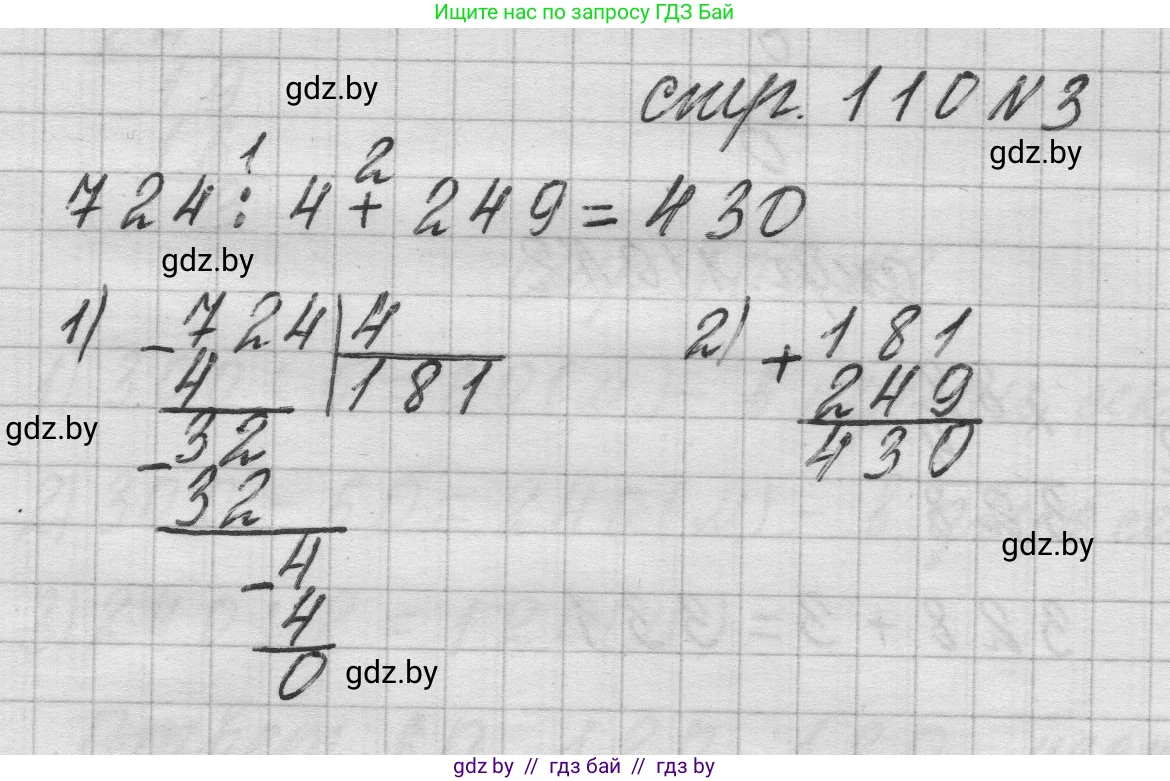 Ищите нас по запросу ГДЗ Бай
gdz.by
стр. 110 N 3
gdz.by
1 2
724 : 4 + 249 = 430
gdz.by
1) - 724 | 4
4 181
gdz.by
- 32
32
- 4
4
0
gdz.by
2) + 181
249
430
gdz.by
gdz.by // гдз бай // гдз by